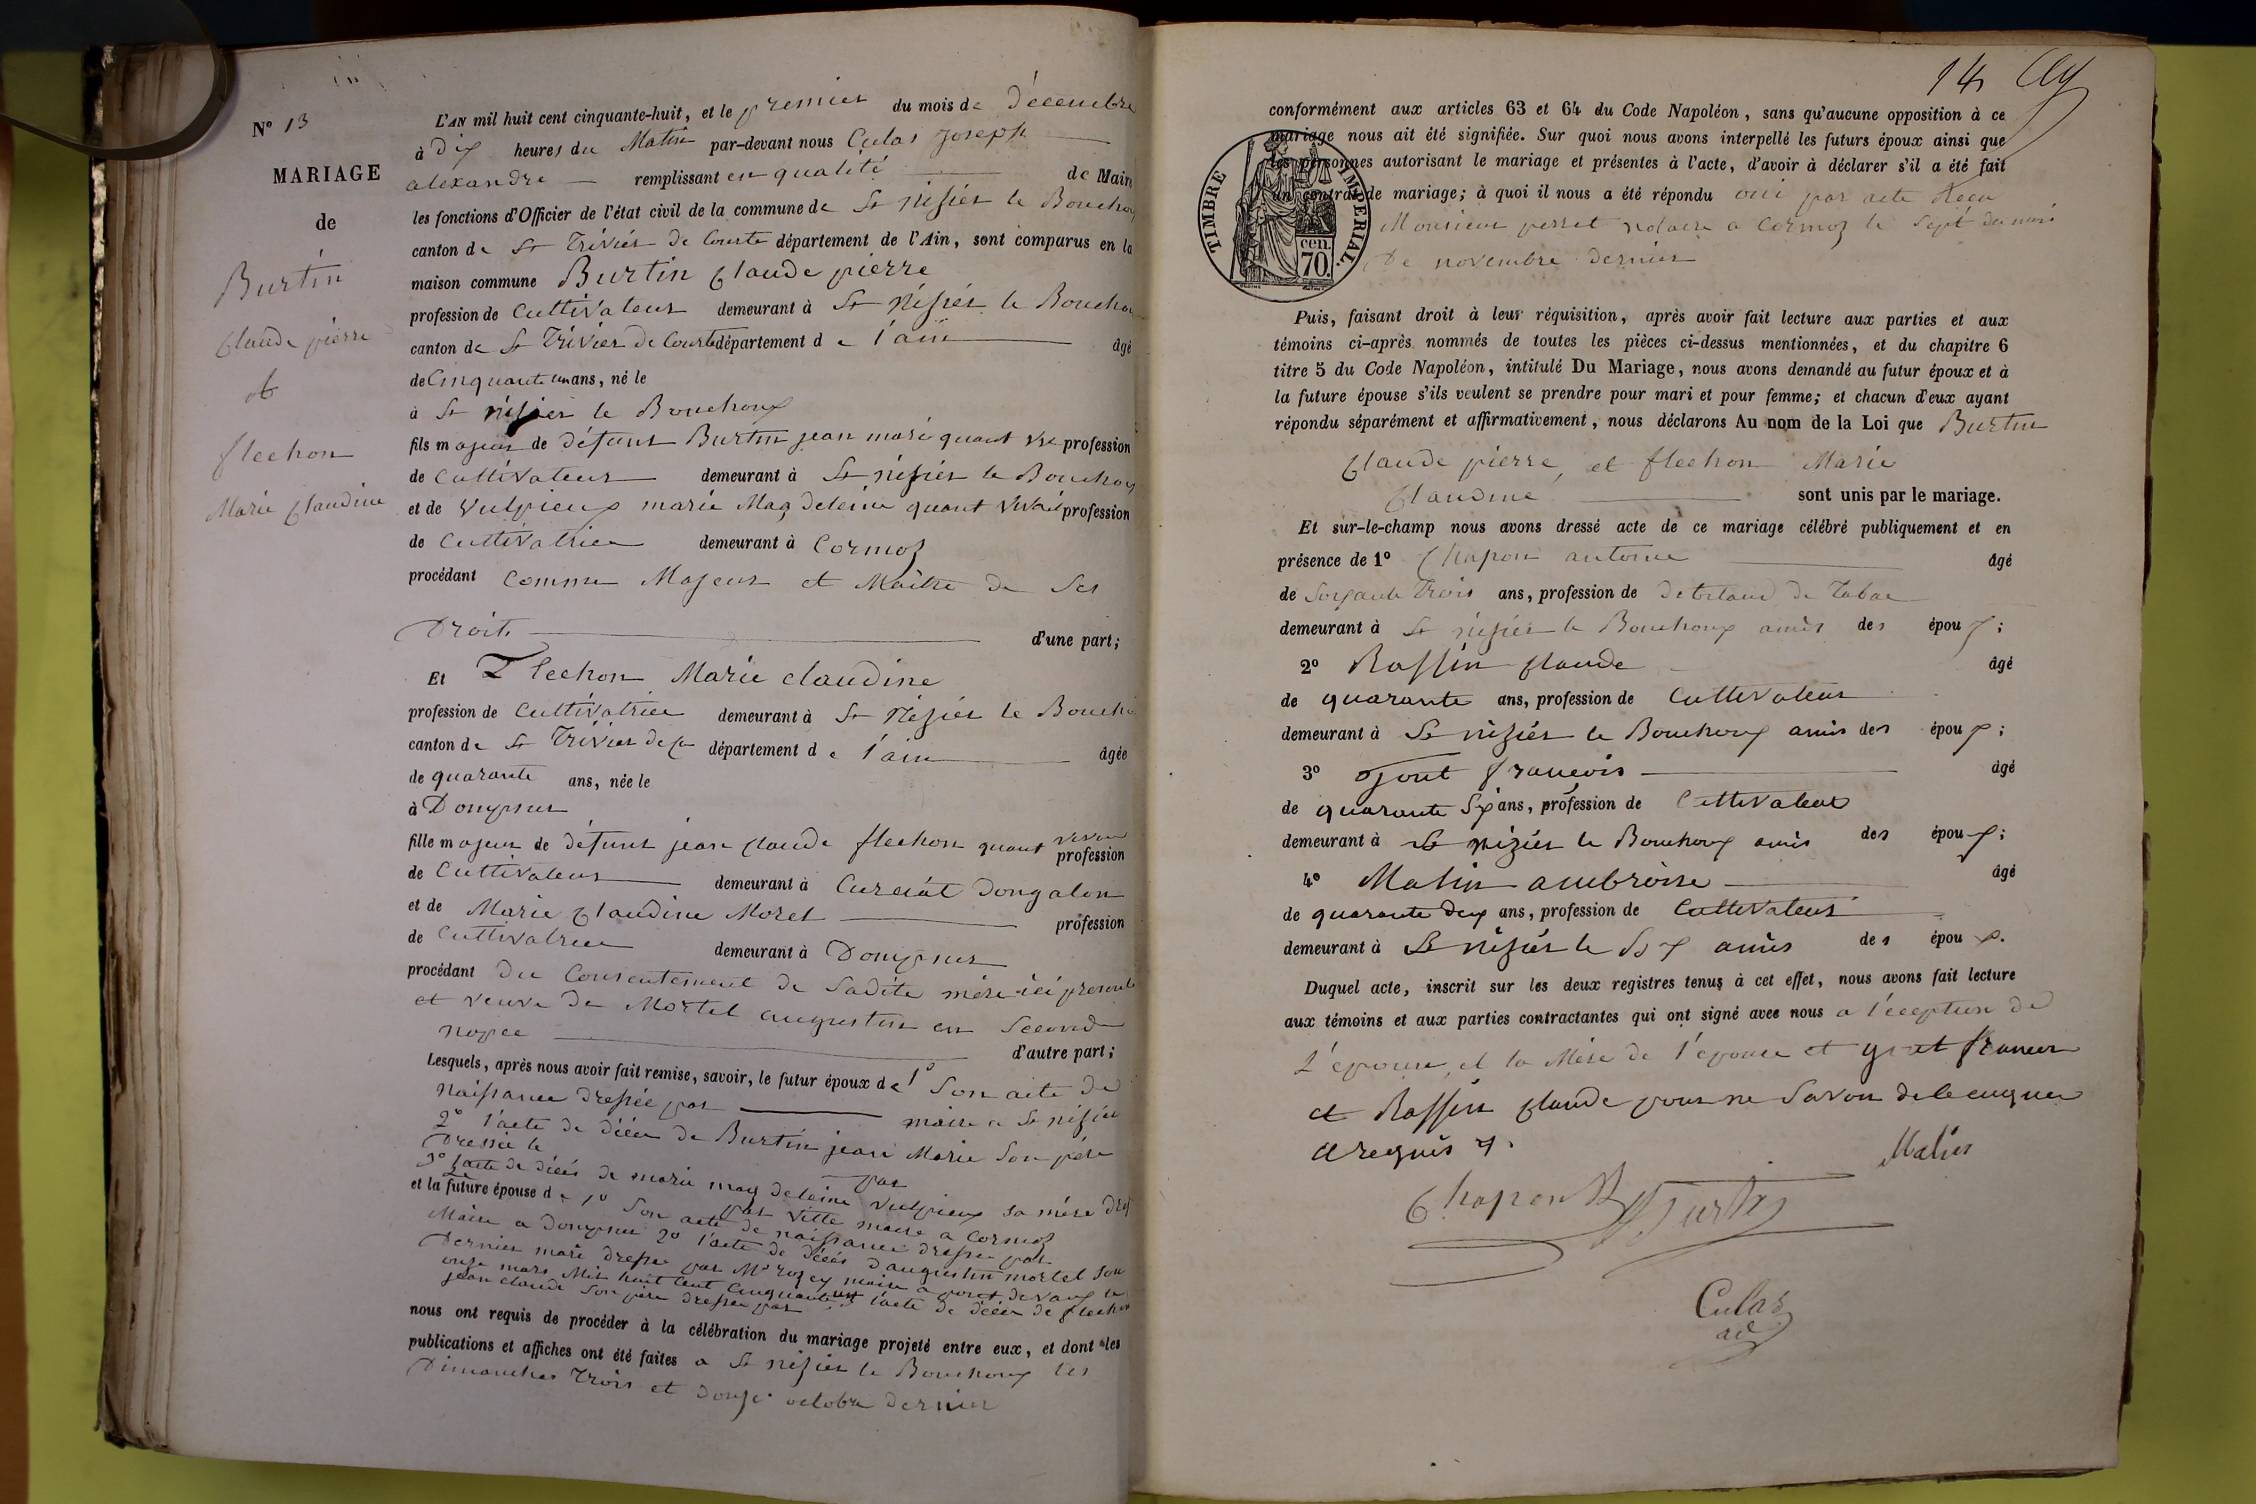 N° 13
MARIAGE
de
Burtin
Claude pierre
et
flechon
Marie Claudine
L'AN mil huit cent cinquante-huit, et le premier du mois de Décembre
à Dix heures du Matin par-devant nous Culas Joseph
alexandre remplissant en qualité de Maire
les fonctions d'Officier de l'état civil de la commune de St nisiér le Bouchoux
canton de St Triviér de Courte département de l'Ain, sont comparus en la
maison commune Burtin Claude pierre
profession de Cultivateur demeurant à St Nisiér le Bouchou
canton de St Triviér de Courte département de l'ain âgé
de Cinquante un ans, né le
à St nisiér le Bouchoux
fils majeur de défunt Burtin jean marie quant vi profession
de Cultivateur demeurant à St nisiér le Bouchoux
et de Vulpieux marie Magdeleine quant vivait profession
de Cultivatrice demeurant à Cormoz
procédant Comme Majeur et Maitre de Ses
Droits d'une part;
Et Flechon Marie claudine
profession de Cultivatrice demeurant à St Nisiér le Bouch
canton de St Triviér de C département de l'ain âgée
de quarante ans, née le
à Domsure
fille majeur de défunt jean claude flechon quant vivai profession
de Cultivateur demeurant à Curciat Dongalon
et de Marie Claudine Morel profession
de Cultivatrice demeurant à Domsure
procédant du Consentement de Sadite mère ici presente
et veuve de Mortel augustin en Second
nopce d'autre part;
Lesquels, après nous avoir fait remise, savoir, le futur époux de 1° Son acte de
naissance dressée par maire a St nisiér
2° l'acte de décés de Burtin jean Marie Son pére
Dressée le par
3° l'acte de décés de marie magdeleine Vulpieux sa mére dres
Le par Vitte maire a Cormoz
et la future épouse de 1° Son acte de naissance dressée par
Maire a domsure 2° l'acte de décés d'augustin mortel Son
Dernier mari dresse par Mr rozey maire a pont de vaux le
onze mars Mil huit Cent Cinquante l'acte de décés de flechon
jean claude Son pére dressée par
nous ont requis de procéder à la célébration du mariage projeté entre eux, et dont les
publications et affiches ont été faites a St nisiér le Bouchoux les
Dimanches Trois et douze octobre dernier
14
conformément aux articles 63 et 64 du Code Napoléon, sans qu'aucune opposition à ce
mariage nous ait été signifiée. Sur quoi nous avons interpellé les futurs époux ainsi que
les personnes autorisant le mariage et présentes à l'acte, d'avoir à déclarer s'il a été fait
un contrat de mariage; à quoi il nous a été répondu oui par acte Recu
Monsieur perret notaire a Cormoz le Sept du mois
De novembre dernier
TIMBRE IMPERIAL.
cen.
70.
Puis, faisant droit à leur réquisition, après avoir fait lecture aux parties et aux
témoins ci-après nommés de toutes les pièces ci-dessus mentionnées, et du chapitre 6
titre 5 du Code Napoléon, intitulé Du Mariage, nous avons demandé au futur époux et à
la future épouse s'ils veulent se prendre pour mari et pour femme; et chacun d'eux ayant
répondu séparément et affirmativement, nous déclarons Au nom de la Loi que Burtin
Claude pierre, et flechon Marie
Claudine sont unis par le mariage.
Et sur-le-champ nous avons dressé acte de ce mariage célébré publiquement et en
présence de 1° Chapon antoine âgé
de Soixante Trois ans, profession de debitant de Tabac
demeurant à St nisiér le Bouchoux amis des époux;
2° Rassin Claude âgé
de quarante ans, profession de Cultivateur
demeurant à St nisiér le Bouchoux amis des époux;
3° françois âgé
de quarante Six ans, profession de Cultivateur
demeurant à St niziér le Bouchoux amis des époux;
4° Matin ambroise âgé
de quarante deux ans, profession de Cultivateur
demeurant à St nisiér le Bx amis des époux.
Duquel acte, inscrit sur les deux registres tenus à cet effet, nous avons fait lecture
aux témoins et aux parties contractantes qui ont signé avec nous a l'éception de
L'épouse, et la Mére de l'épouse et
et Rassin Claude pour ne Savoir de ce enquer
et requis
Matin
Chapon Burtin
Culas
ad